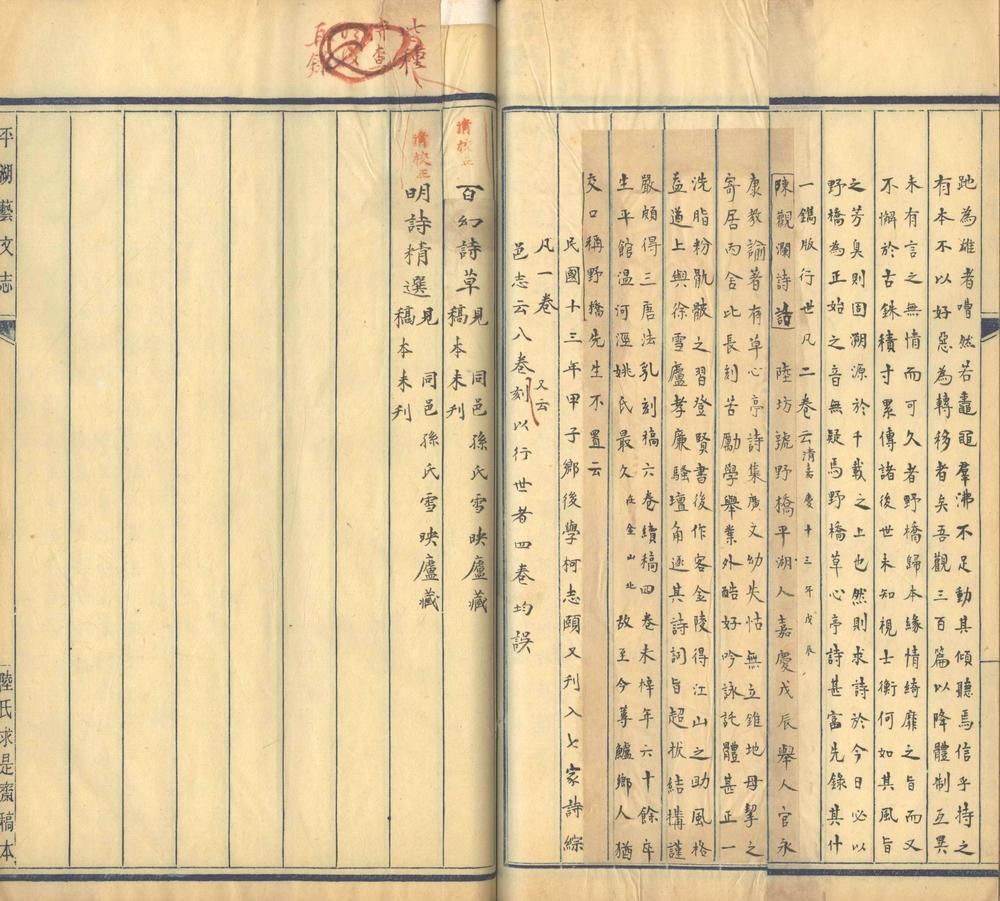 跪為雄者嘈然若鼃黽羣沸不足動其傾聽焉信乎持之
有本不以好惡為轉移者矣吾觀三百篇以降體制互異
未有言之無情而可久者野橋歸本緣情綺靡之旨而又
不懈於古銖積寸累傳諸後世未知視士衡何如其風旨
之芳臭則固溯源於千載之上也然則求詩於今日必以
野橋為正始之音無疑焉野橋草心亭詩甚富先錄其什
一鐫版行世凡二卷云清嘉慶十三年戊辰
陳觀瀾詩話 陸坊號野橋平湖人嘉慶戊辰舉人官永
康教諭著有草心亭詩集廣文幼失怙無立錐地母挈之
寄居丙舍比長刻苦勵學舉業外酷好吟詠託體甚正一
洗脂粉骫骳之習登賢書後作客金陵得江山之助風格
益遒上與徐雪廬孝廉騷壇角逐其詩詞旨超拔結構謹
嚴頗得三唐法乳刻稿六卷續稿四卷未梓年六十餘卒
生平館溫河涇姚氏最久在金山北故至今尊鱸鄉人猶
交口稱野橋先生不置云
民國十三年甲子鄉後學柯志頤又刊入七家詩綜
凡一卷
邑志云八卷刻又云以行世者四卷均誤
請校正
百幻詩草見同邑孫氏雪映廬藏
稿本未刊
請校正
明詩精選見同邑孫氏雪映廬藏
稿本未刊
七種
平湖藝文志
陸氏求是齋稿本